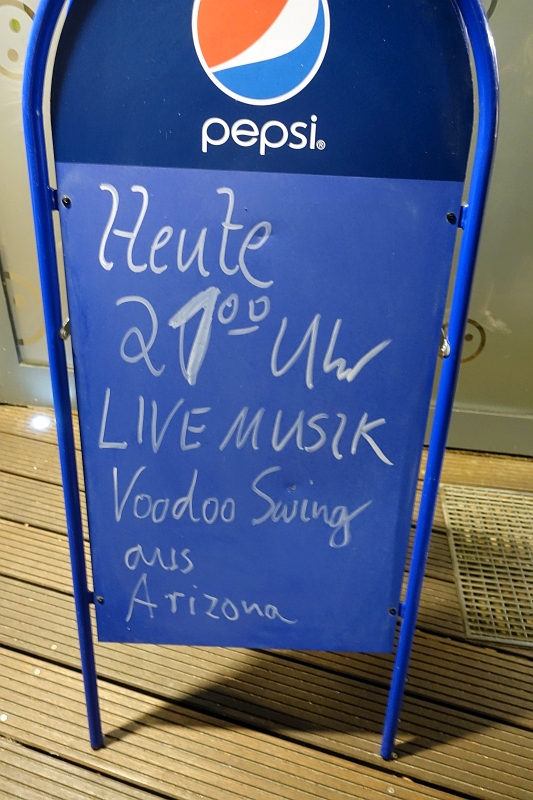 pepsi®
Heute
21⁰⁰ Uhr
LIVE MUSIK
Voodoo Swing
aus
Arizona